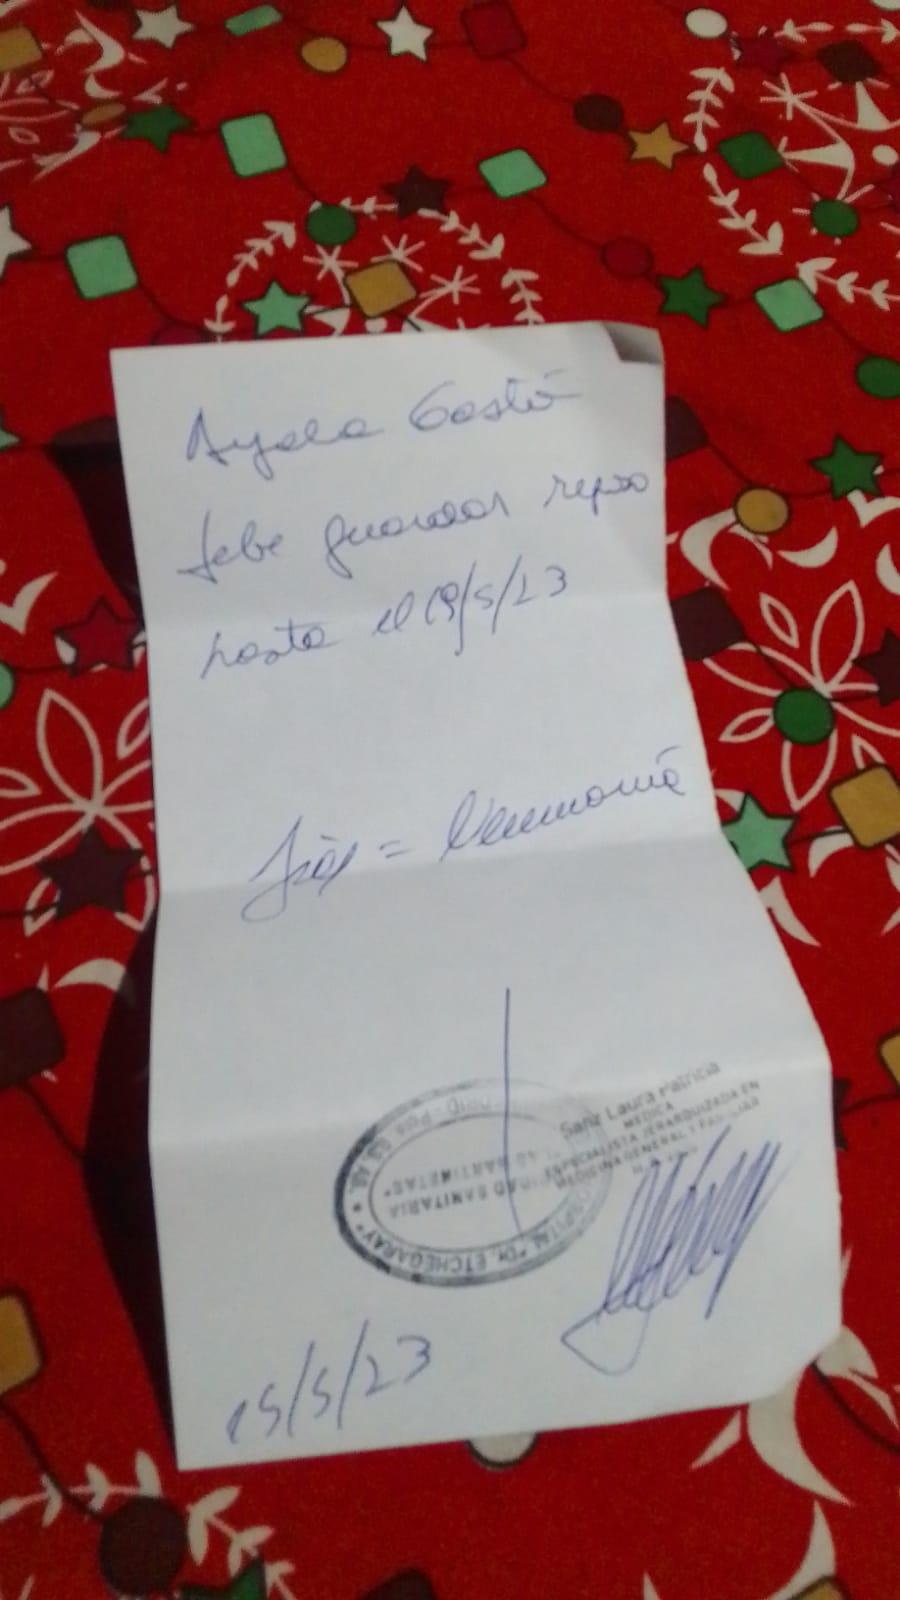 Ayala Gastó
debe guardar reposo
hasta el 19/5/23
Diag = Neumonía
Sanz Laura Patricia
MEDICA
ESPECIALISTA JERARQUIZADA EN
MEDICINA GENERAL Y FAMILIAR
HOSPITAL "Dr. ETCHEGARAY"
UNIDAD SANITARIA
MARTINETAS"
15/5/23